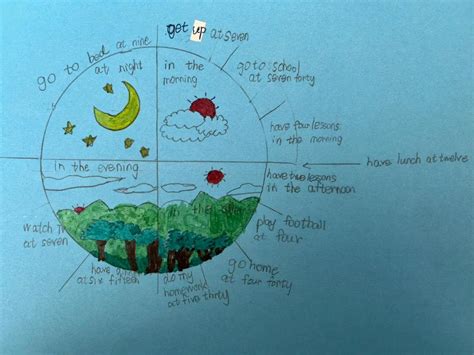 get up at seven
go to bed at nine
at night
in the
morning
go to school
at seven forty
have four lessons
in the morning
have lunch at twelve
in the evening
have two lessons
in the afternoon
in the
play football
at four
go home
at four forty
do my
homework
at five thirty
have
at six fifteen
watch
at seven